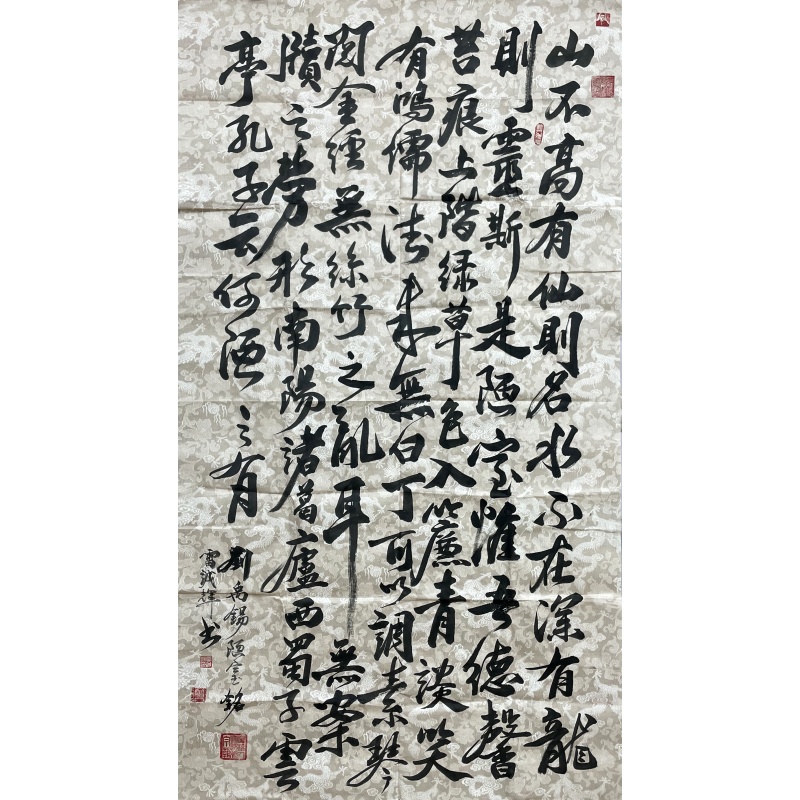 山不高有仙則名水不在深有龍
則靈斯是陋室惟吾德馨
苔痕上階緑草色入簾青談笑
有鴻儒往来無白丁可以調素琴
閲金經無絲竹之亂耳無案
牘之勞形南陽諸葛廬西蜀子雲
亭孔子云何陋之有
劉禹錫陋室銘
雷輝书